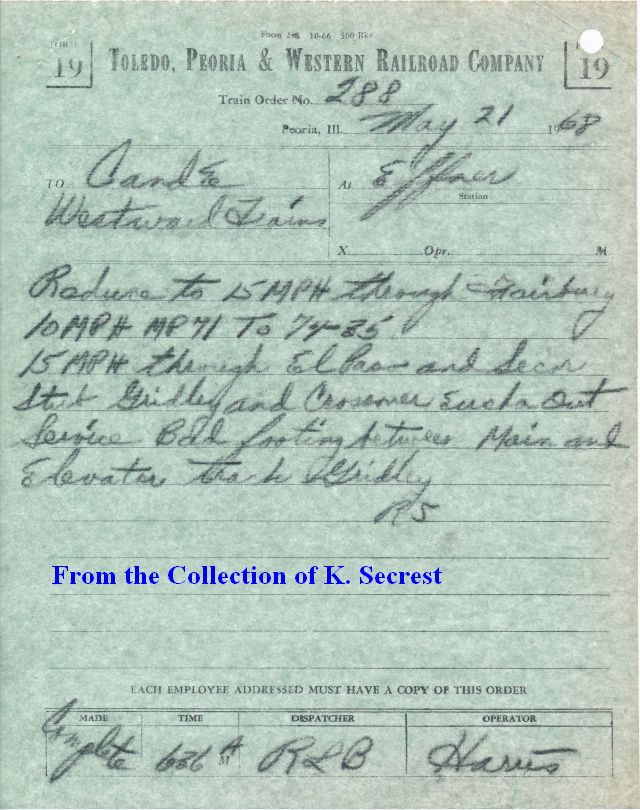 Form 248 10-66 500 Bks
FORM 19 TOLEDO, PEORIA & WESTERN RAILROAD COMPANY 19
Train Order No. 288
Peoria, Ill. May 21 1968
TO C and E At Effner
Station
Westward Trains
X Opr. M
Reduce to 15 MPH through Fairbury
10 MPH MP 71 To 74-35
15 MPH through El Paso and Secor
Stub Gridley and Crossover Eureka Out
Service Bad footing between Main and
Elevator track Gridley
RS
From the Collection of K. Secrest
EACH EMPLOYEE ADDRESSED MUST HAVE A COPY OF THIS ORDER
MADE TIME DISPATCHER OPERATOR
Complete 636 A M RLB Harris